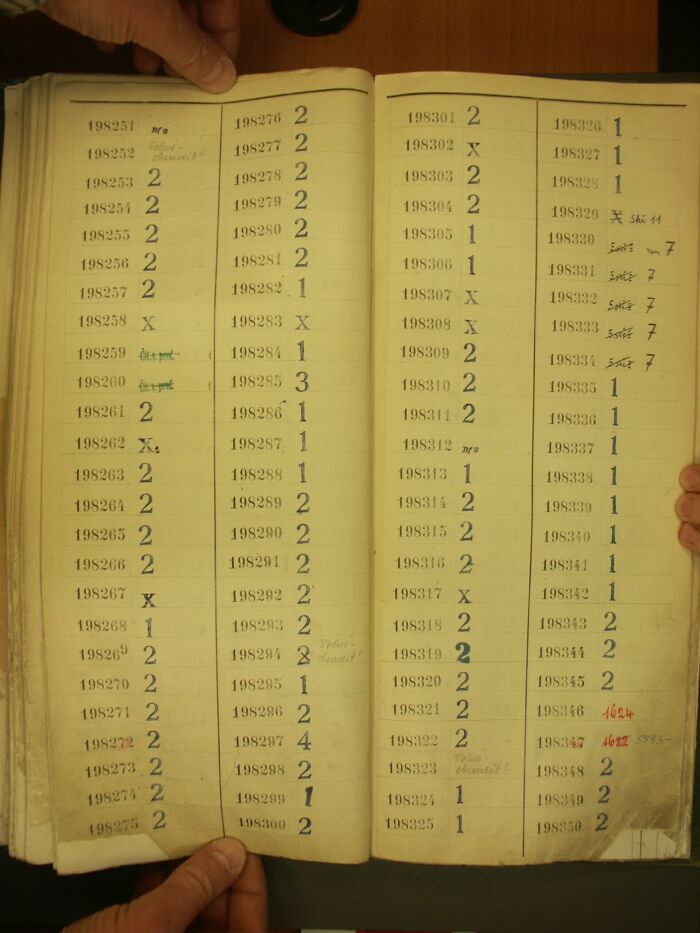 198251 Bf 2
198252 Volné - obsadit!
198253 2
198254 2
198255 2
198256 2
198257 2
198258 X
198259 Čít. v. prot.
198260 Čít. v. prot.
198261 2
198262 X2
198263 2
198264 2
198265 2
198266 2
198267 X
198268 1
198269 2
198270 2
198271 2
198272 2
198273 2
198274 2
198275 2
198276 2
198277 2
198278 2
198279 2
198280 2
198281 2
198282 1
198283 X
198284 1
198285 3
198286 1
198287 1
198288 1
198289 2
198290 2
198291 2
198292 2
198293 2
198294 2 Volné - obsadit!
198295 1
198296 2
198297 4
198298 2
198299 1
198300 2
198301 2
198302 X
198303 2
198304 2
198305 1
198306 1
198307 X
198308 X
198309 2
198310 2
198311 2
198312 Bf 2
198313 1
198314 2
198315 2
198316 2
198317 X
198318 2
198319 2
198320 2
198321 2
198322 2
198323 Volné - obsadit!
198324 1
198325 1
198326 1
198327 1
198328 1
198329 X Ski 11
198330 7
198331 7
198332 7
198333 7
198334 7
198335 1
198336 1
198337 1
198338 1
198339 1
198340 1
198341 1
198342 1
198343 2
198344 2
198345 2
198346 1624
198347 1622 5593-
198348 2
198349 2
198350 2